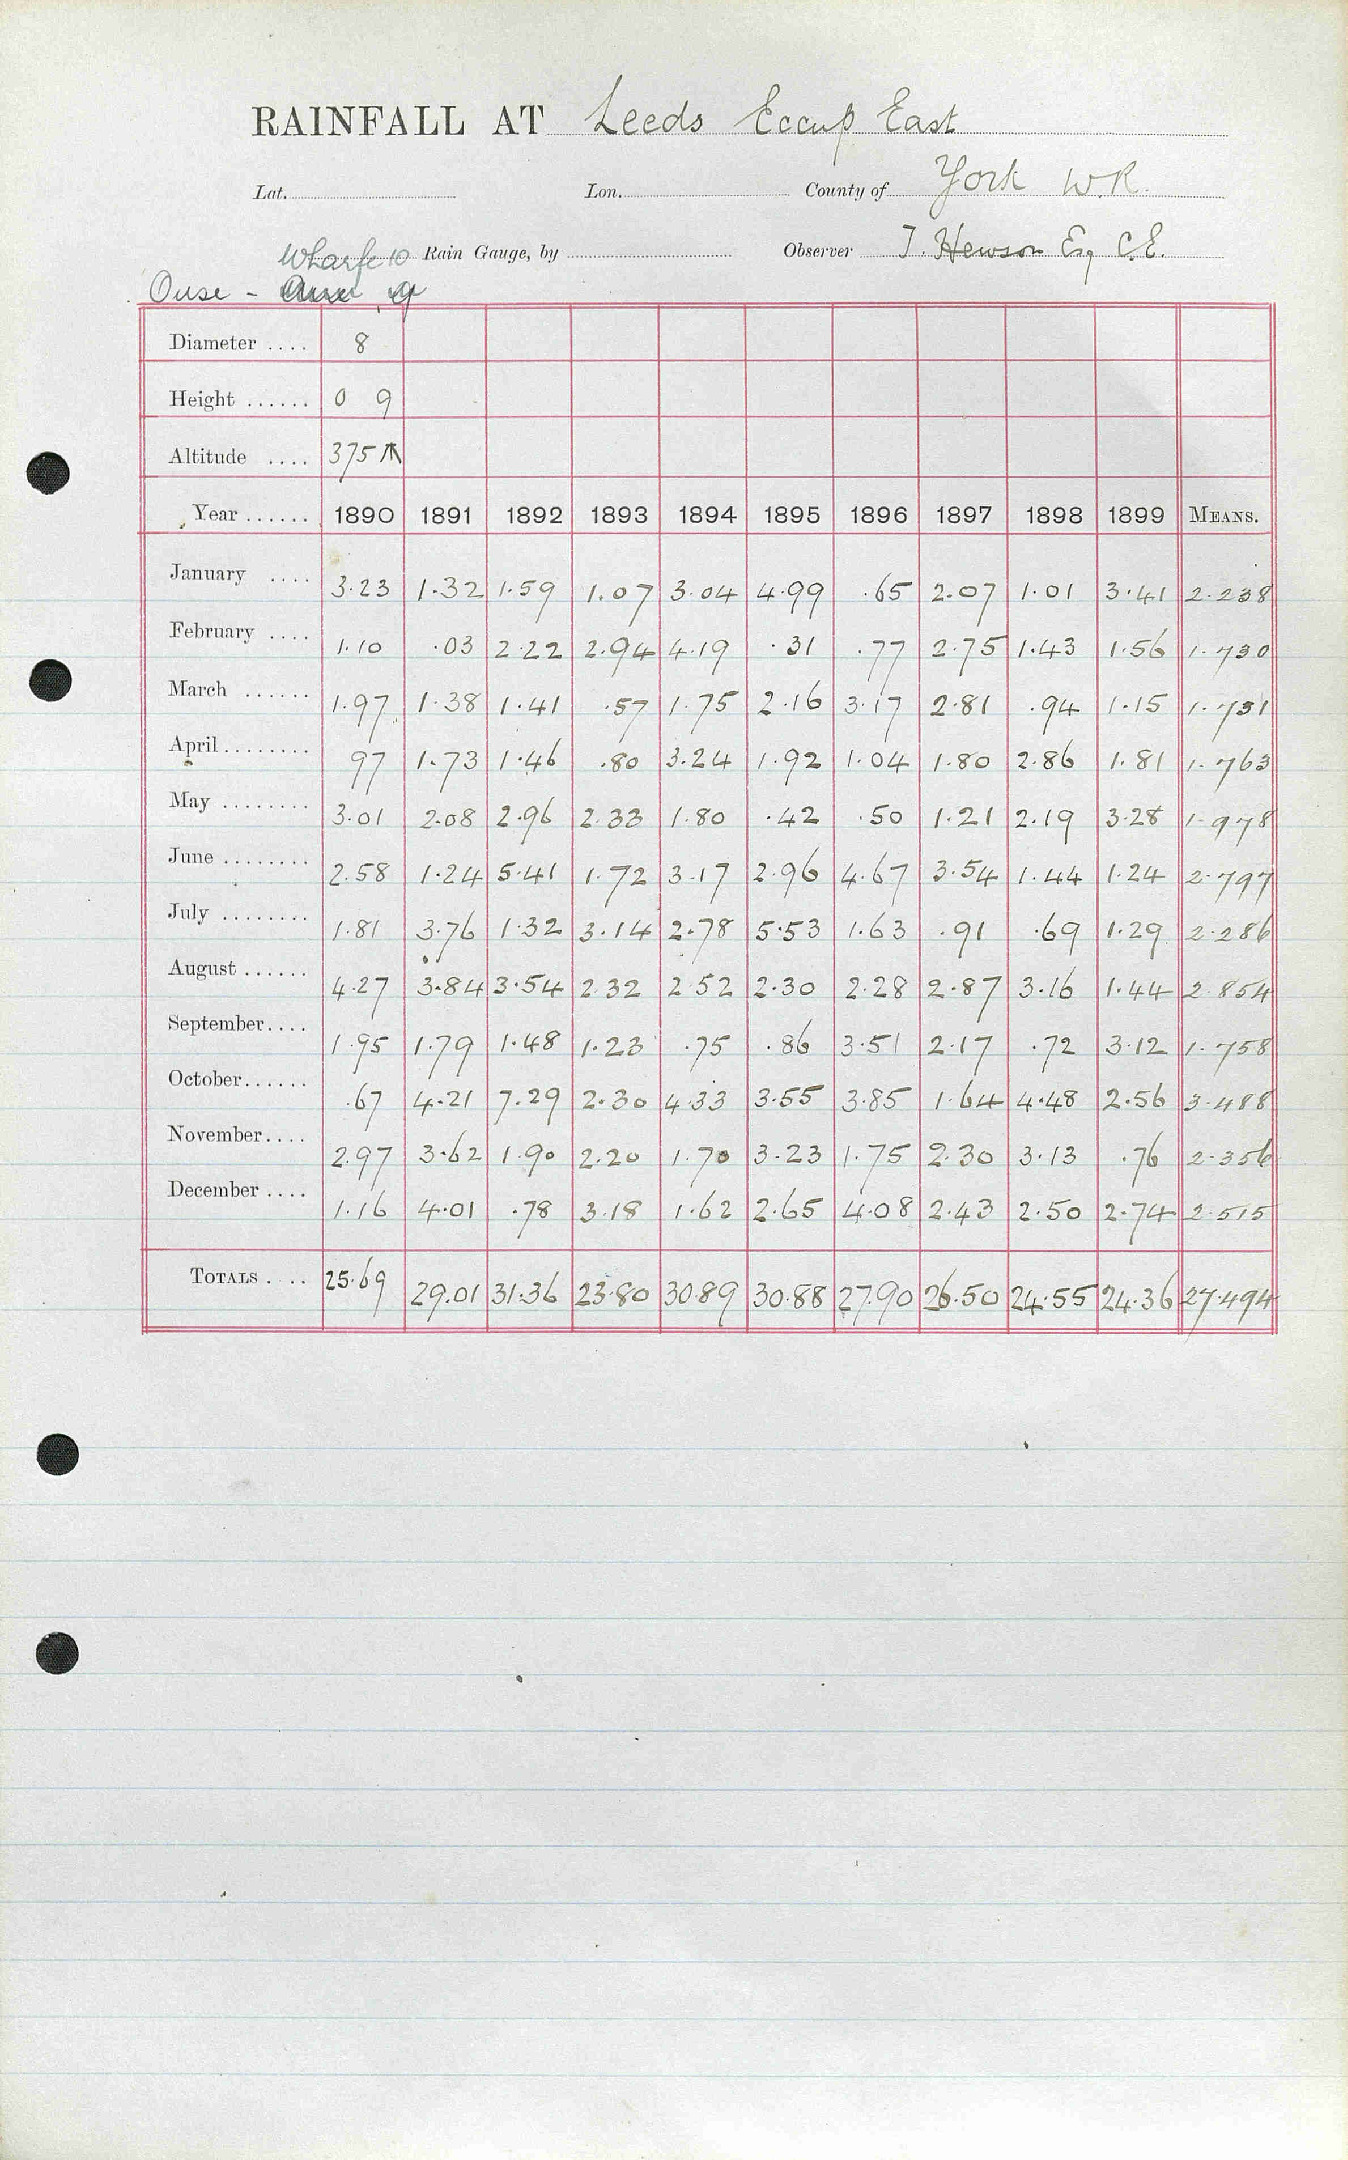 RAINFALL AT Leeds Eccup East
Lat. Lon. County of York W.R.
Wharfe 10 Rain Gauge, by Observer T. Hewson Esq C.E.
Ouse -
Diameter .... 8
Height ...... 0 9
Altitude .... 375
Year ...... 1890 1891 1892 1893 1894 1895 1896 1897 1898 1899 MEANS.
January .... 3.23 1.32 1.59 1.07 3.04 4.99 .65 2.07 1.01 3.41 2.238
February .... 1.10 .03 2.22 2.94 4.19 .31 .77 2.75 1.43 1.56 1.730
March ...... 1.97 1.38 1.41 .57 1.75 2.16 3.17 2.81 .94 1.15 1.731
April ........ 97 1.73 1.46 .80 3.24 1.92 1.04 1.80 2.86 1.81 1.763
May ........ 3.01 2.08 2.96 2.33 1.80 .42 .50 1.21 2.19 3.28 1.978
June ........ 2.58 1.24 5.41 1.72 3.17 2.96 4.67 3.54 1.44 1.24 2.797
July ........ 1.81 3.76 1.32 3.14 2.78 5.53 1.63 .91 .69 1.29 2.286
August ...... 4.27 3.84 3.54 2.32 2.52 2.30 2.28 2.87 3.16 1.44 2.854
September.... 1.95 1.79 1.48 1.23 .75 .86 3.51 2.17 .72 3.12 1.758
October...... .67 4.21 7.29 2.30 4.33 3.55 3.85 1.64 4.48 2.56 3.488
November.... 2.97 3.62 1.90 2.20 1.70 3.23 1.75 2.30 3.13 .76 2.356
December .... 1.16 4.01 .78 3.18 1.62 2.65 4.08 2.43 2.50 2.74 2.515
TOTALS .... 25.69 29.01 31.36 23.80 30.89 30.88 27.90 26.50 24.55 24.36 27.494